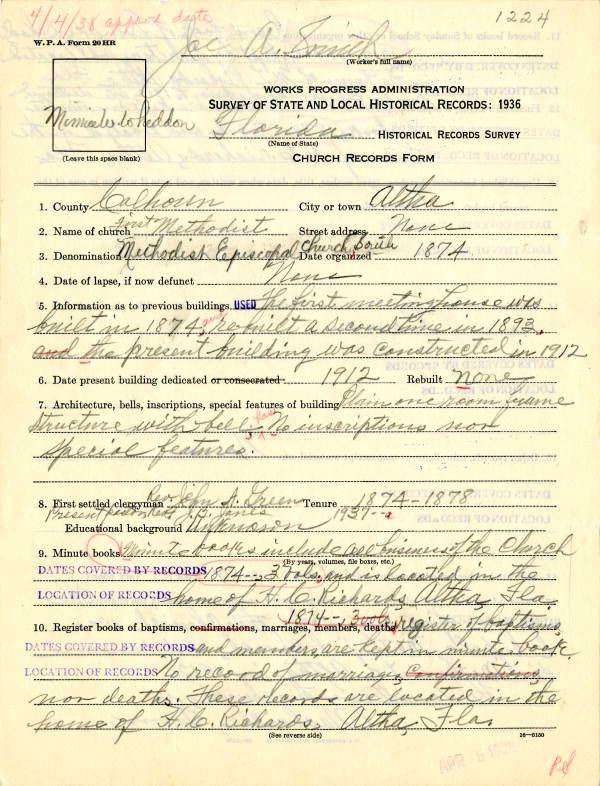 4/4/38 approx date
1224
W. P. A. Form 20 HR
Joe A. Smith
(Worker's full name)
WORKS PROGRESS ADMINISTRATION
SURVEY OF STATE AND LOCAL HISTORICAL RECORDS: 1936
Florida HISTORICAL RECORDS SURVEY
(Name of State)
(Leave this space blank)
CHURCH RECORDS FORM
1. County Calhoun City or town Altha
2. Name of church First Methodist Street address None
3. Denomination Methodist Episcopal Church, South Date organized 1874
4. Date of lapse, if now defunct None
5. Information as to previous buildings USED The first meeting house was
built in 1874, and rebuilt a second time in 1893,
and the present building was constructed in 1912
6. Date present building dedicated or consecrated 1912 Rebuilt None
7. Architecture, bells, inscriptions, special features of building Plain one room frame
structure with bell. has No inscriptions nor
special features.
8. First settled clergyman Rev. John A. Green Tenure 1874-1878
Present 1937--
Educational background Unknown
9. Minute books Minute books include all business of the Church
(By years, volumes, file boxes, etc.)
DATES COVERED BY RECORDS 1874--, 3 vols, and is located in the
LOCATION OF RECORDS home of H. C. Richards, Altha, Fla
1874--3 vols
10. Register books of baptisms, confirmations, marriages, members, deaths, register of baptisms,
DATES COVERED BY RECORDS and members are kept in minute book.
LOCATION OF RECORDS No record of marriage, confirmations
nor deaths. These records are located in the
home of H. C. Richards, Altha, Fla.
(See reverse side)
16—6150